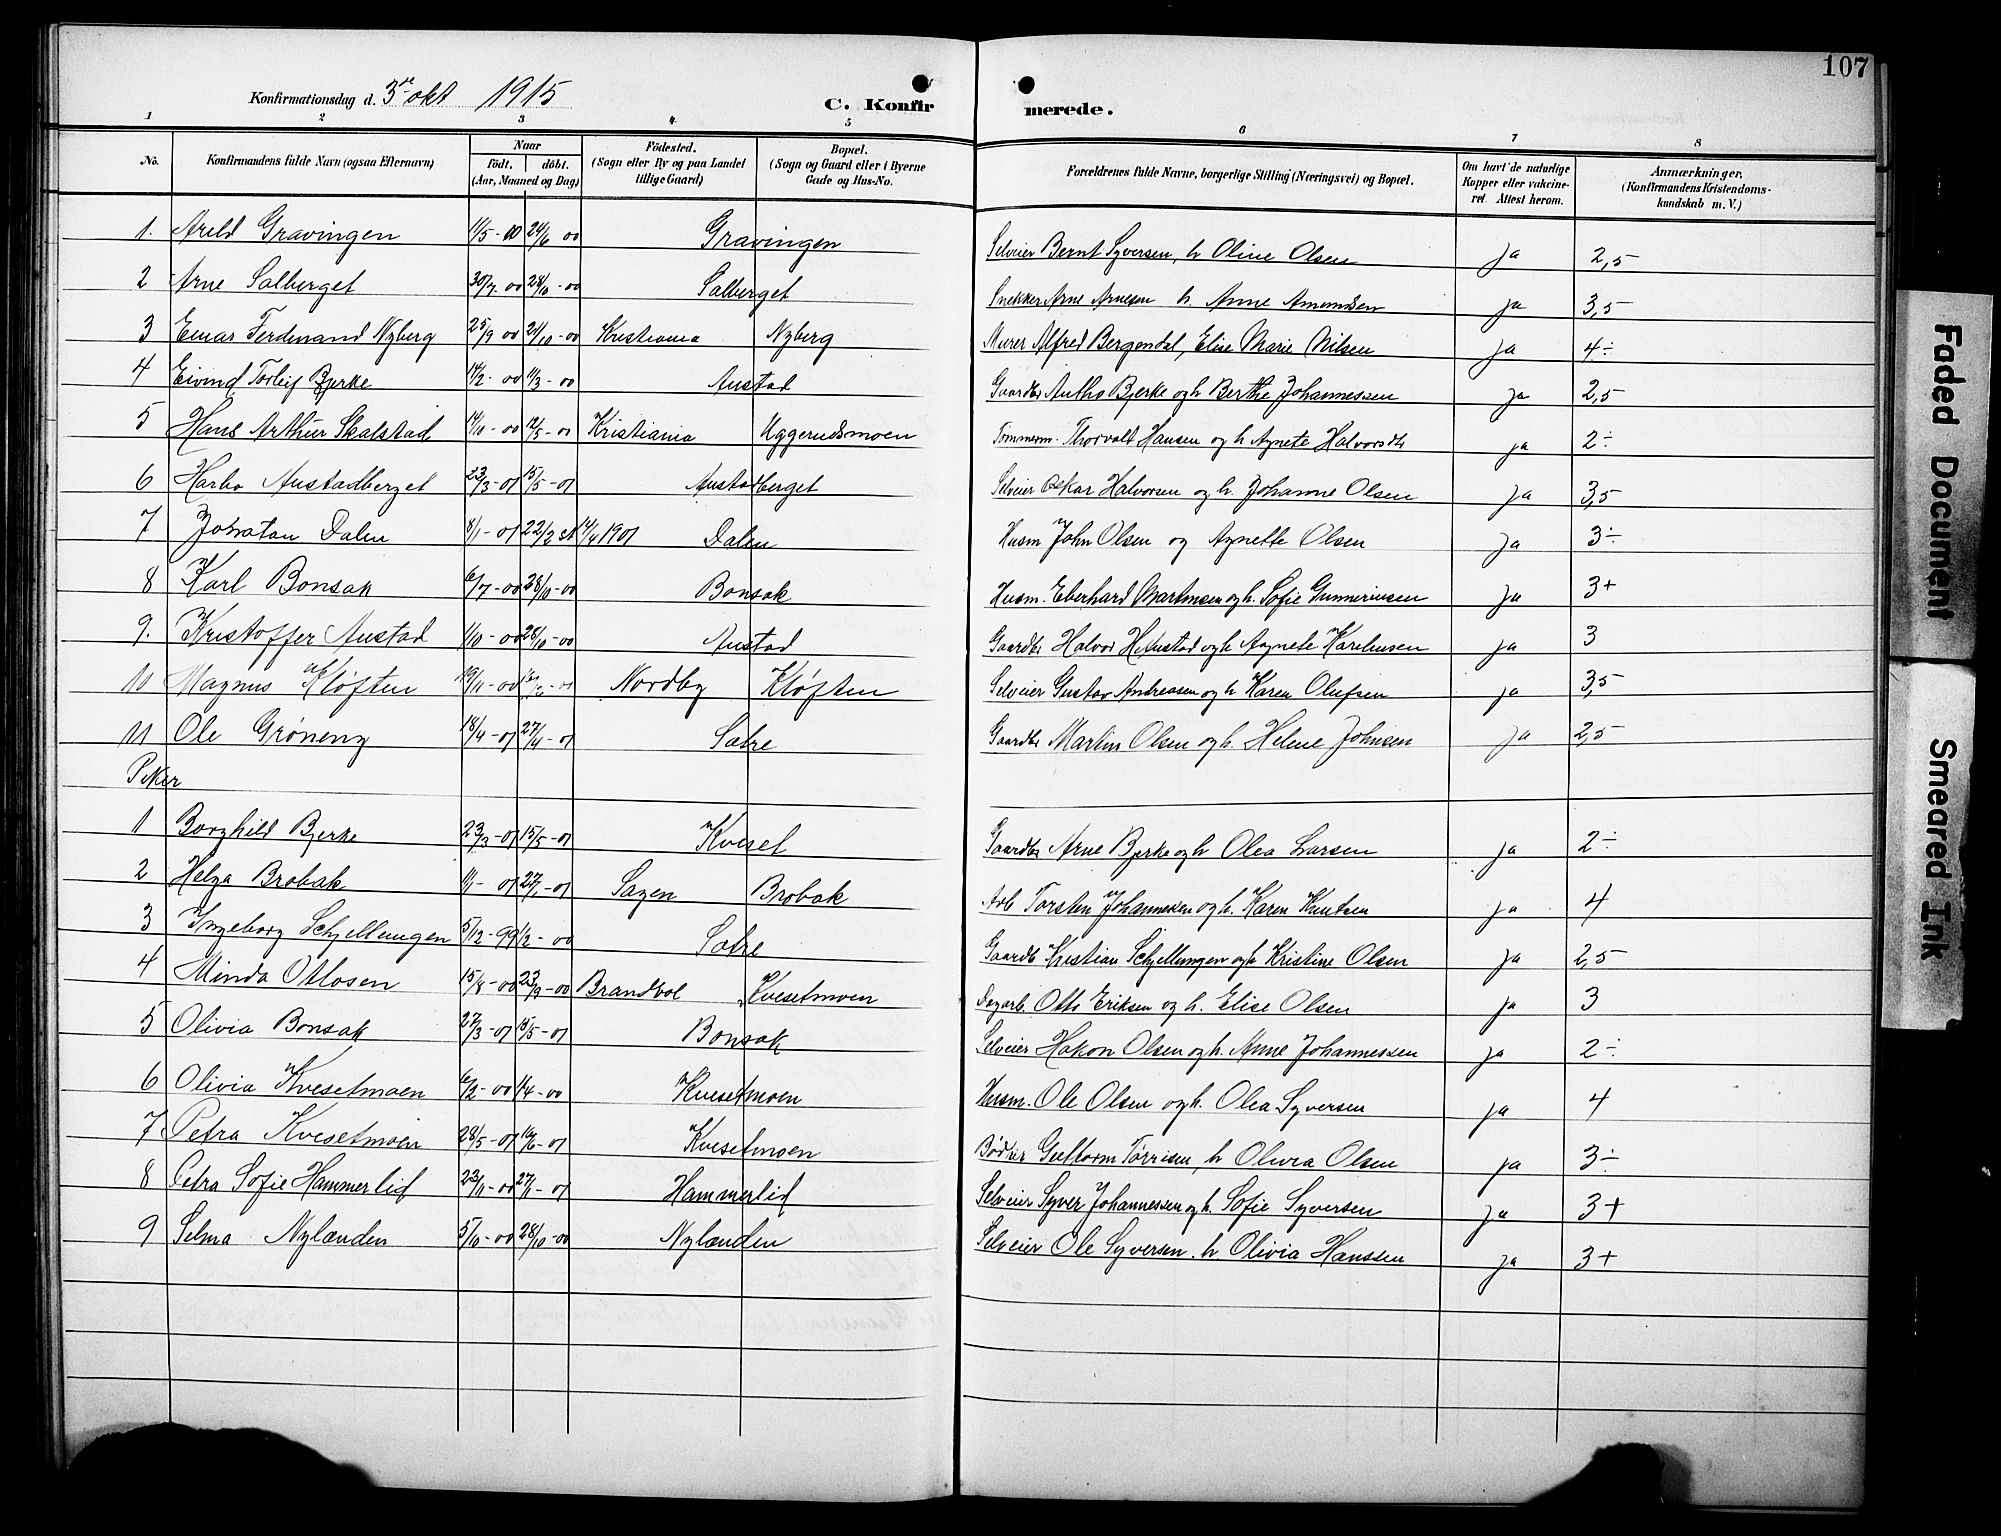 107
Konfirmationsdag d. 3die okt 1915
C. Konfirmerede.
1 2 3 4 5 6 7 8
No. Konfirmandens fulde Navn (ogsaa Efternavn) Naar födt. döbt. (Aar, Maaned og Dag) Födested. (Sogn eller By og paa Landet tillige Gaard) Bopæl. (Sogn og Gaard eller i Byerne Gade og Hus-No. Forældrenes fulde Navne, borgerlige Stilling (Næringsvei) og Bopæl. Om havt de naturlige Kopper eller vakcineret. Attest herom. Anmærkninger. (Konfirmandens Kristendomskundskab m. V.)
1. Arild Gravingen 11/5-00 24/6 00 Gravingen Selveier Bernt Syversen, h Oline Olsen ja 2,5
2 Arne Salberget 30/7-00 28/10-00 Salberget Snekker Arne Arnesen h. Anne Amundsen ja 3,5
3 Einar Ferdinand Nyberg 25/9 00 21/10-00 Kristiania Nyberg Murer Alfred Bergendal, Elise Marie Nilsen ja 4÷
4 Eivind Torleif Bjerke 11/2-00 11/3-00 Austad Gaardbr Antho Bjerke og h Berthe Johannessen ja 2,5
5 Hans Arthur Skalstad 14/10-00 12/5-01 Kristiania Uggerudsmoen Tømmerm. Thorvalt Hansen og h Agnete Halvorsdtr ja 2÷
6 Harbo Austadberget 23/3-01 15/5-01 Austadberget Selveier Oskar Halvorsen og h. Johanne Olsen ja 3,5
7 Jonatan Dalen 8/1-01 22/2 st 14/4 1901 Dalen Husm John Olsen og Agnette Olsen ja 3÷
8 Karl Bonsak 6/7-00 28/10-00 Bonsak Husm. Eberhard Martinsen og h. Sofie Gunneriusen ja 3+
9. Kristoffer Austad 1/10-00 28/10-00 Austad Gaardbr Halvor H Austad og h Agnete Kareliusen ja 3
10 Magnus Kløften 19/11-00 Nordby Kløften Selveier Gustav Andreasen og h Karen Olufsen ja 3,5
11 Ole Grøneng 18/4-01 27/4-01 Sætre Gaardbr Martin Olsen og h. Helene Johnsen ja 2,5
Piker
1 Borghild Bjerke 23/3-01 15/5-01 Kveset Gaardbr Arne Bjerke og h Olea Larsen ja 2÷
2 Helga Brobak 1/1-01 27/1-01 Sagen Brobak Arb Torsten Johannesen og h. Karen Knutsen ja 4
3 Ingeborg Schjellungen 5/12-99 1/2-00 Sætre Gaardb Kristian Schjellungen og h Kristine Olsen ja 2,5
4 Minda Ottosen 15/8-00 23/9-00 Brandvol Kvesetmoen Dagarb. Otto Eriksen og h. Elise Olsen ja 3
5 Olivia Bonsak 27/3-01 15/5-01 Bonsak Selveier Hakon Olsen og h. Anne Johannessen ja 2÷
6 Olivia Kvesetmoen 6/2-00 1/4-00 Kvesetmoen Husm. Ole Olsen og h. Olea Syversen ja 4
7 Petra Kvesetmoen 28/5-01 16/6-01 Kvesetmoen Bødker Guttorm Tørrisen, h Olivia Olsen ja 3÷
8 Petra Sofie Hammerlid 23/11-00 27/1-01 Hammerlid Selveier Syver Johannessen og h. Sofie Syversen ja 3+
9 Selma Nylænden 5/10-00 28/10-00 Nylænden Selveier Ole Syversen. h. Olivia Hanssen ja 3+
Faded Document
Smeared Ink